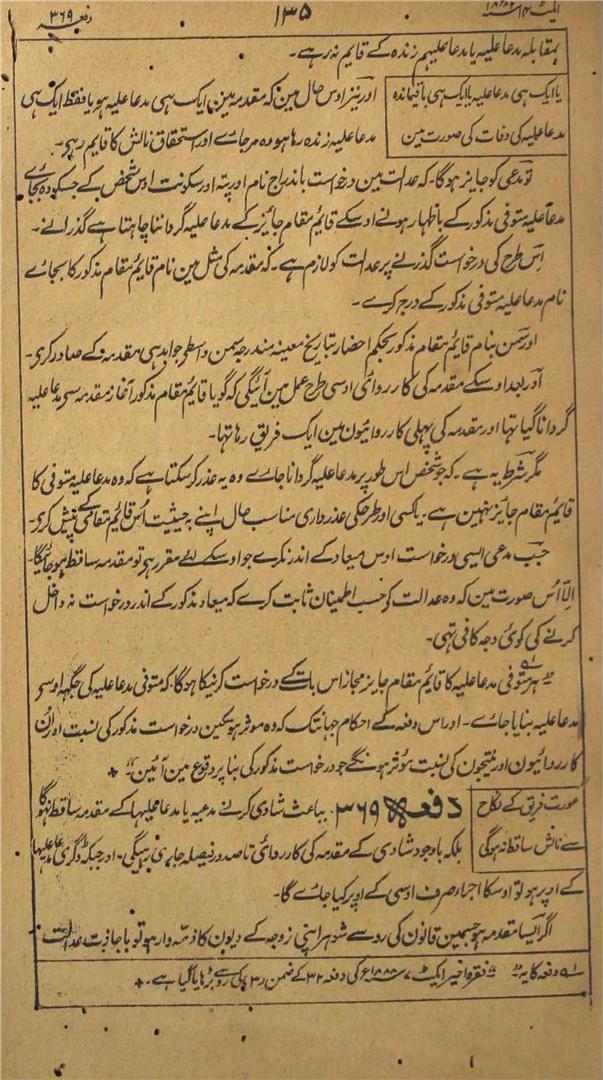 ایکٹ ۱۴ ۱۸۸۲ ۱۳۵ دفعہ ۳۶۹
بمقابلہ مدعا علیہ یا مدعا علیہم زندہ کے قایم نرہے۔
یا ایک ہی مدعا علیہ یا ایک ہی باقیماندہ
مدعا علیہ کی وفات کی صورت مین
اور نیز اوس حال مین کہ مقدمہ مین ایک ہی مدعا علیہ ہو یا فقط ایک ہی
مدعا علیہ زندہ رہا ہو وہ مرجاے اور استحقاق نالش کا قایم رہے۔
تو مدعی کو جایز ہوگا۔ کہ عدالت مین درخواست باندراج نام اور پتہ اور سکونت اوس شخص کے جسکو وہ بجاے
مدعا علیہ متوفی مذکور کے باظہار ہونے اوسکے قایم مقام جائیز کے مدعا علیہ گرداننا چاہتا ہے گذرانے۔
اس طرح کی درخواست گذرنے پر عدالت کو لازم ہے۔ کہ مقدمہ کی مثل مین نام قایم مقام مذکور کا بجاے
نام مدعا علیہ متوفی مذکور کے درج کرے۔
اور سمن بنام قایم مقام مذکور بحکم احضار بتاریخ معینہ مندرجہ سمن واسطے جوابدہی مقدمہ کے صادر کرے۔
اور بعد اوسکے مقدمہ کی کارروائی اوسی طرح عمل مین آئیگی کہ گویا قایم مقام مذکور آغاز مقدمہ سے مدعا علیہ
گردانا گیا تہا اور مقدمہ کی پہلی کارروائیون مین ایک فریق رہا تہا۔
مگر شرط یہ ہے۔ کہ جو شخص اس طور پر مدعا علیہ گردانا جاے وہ یہ عذر کرسکتا ہے کہ وہ مدعا علیہ متوفی کا
قایم مقام جائیز نہین ہے۔ یا کسی اور طرحکی عذرداری مناسب حال اپنے بہ حیثیت اُس قایم مقامی کے پیش کرے۔
جب مدعی ایسی درخواست اوس میعاد کے اندر نکرے جو اوسکے لئے مقرر ہے تو مقدمہ ساقط ہوجائیگا۔
الّا اُس صورت مین کہ وہ عدالت کو حسب اطمینان ثابت کرے کہ میعاد مذکور کے اندر درخواست نہ داخل
کرنے کی کوئی وجہ کافی تہی۔
”ہر متوفی مدعا علیہ کا قایم مقام جایز مجاز اس بات کے درخواست کرنیکا ہوگا۔ کہ متوفی مدعا علیہ کی جگہہ اوسے
مدعا علیہ بنایا جاے۔ اور اس دفعہ کے احکام جہانتک کہ وہ موثر ہوسکین درخواست مذکور کی نسبت اور اُن
کارروائیون اور نتیجون کی نسبت موثر ہونگے جو درخواست مذکور کی بنا پر وقوع مین آئین“۔ +
عورت فریق کے نکاح
سے نالش ساقط نہ ہوگی
دفعہ ۳۶۹۔ بباعث شادی کرنے مدعیہ یا مدعا علیہا کے مقدمہ ساقط نہوگا
بلکہ باوجود شادی کے مقدمہ کی کارروائی تا صدور فیصلہ جاری رہیگی۔ اور جبکہ ڈگری مدعا علیہا
کے اوپر ہو تو اوسکا اجرا صرف اوسی کے اوپر کیا جاے گا۔
اگر ایسا مقدمہ ہو جسمین قانون کی رو سے شوہر اپنی زوجہ کے دیون کا ذمہ وار ہو تو باجازت عدالت
دفعہ کا یہ فقرہ اخیر ایکٹ ۷ ۱۸۸۸ء کی دفعہ ۳۲ کے ضمن ۳ کی رو سے بڑہایا گیا ہے۔ +